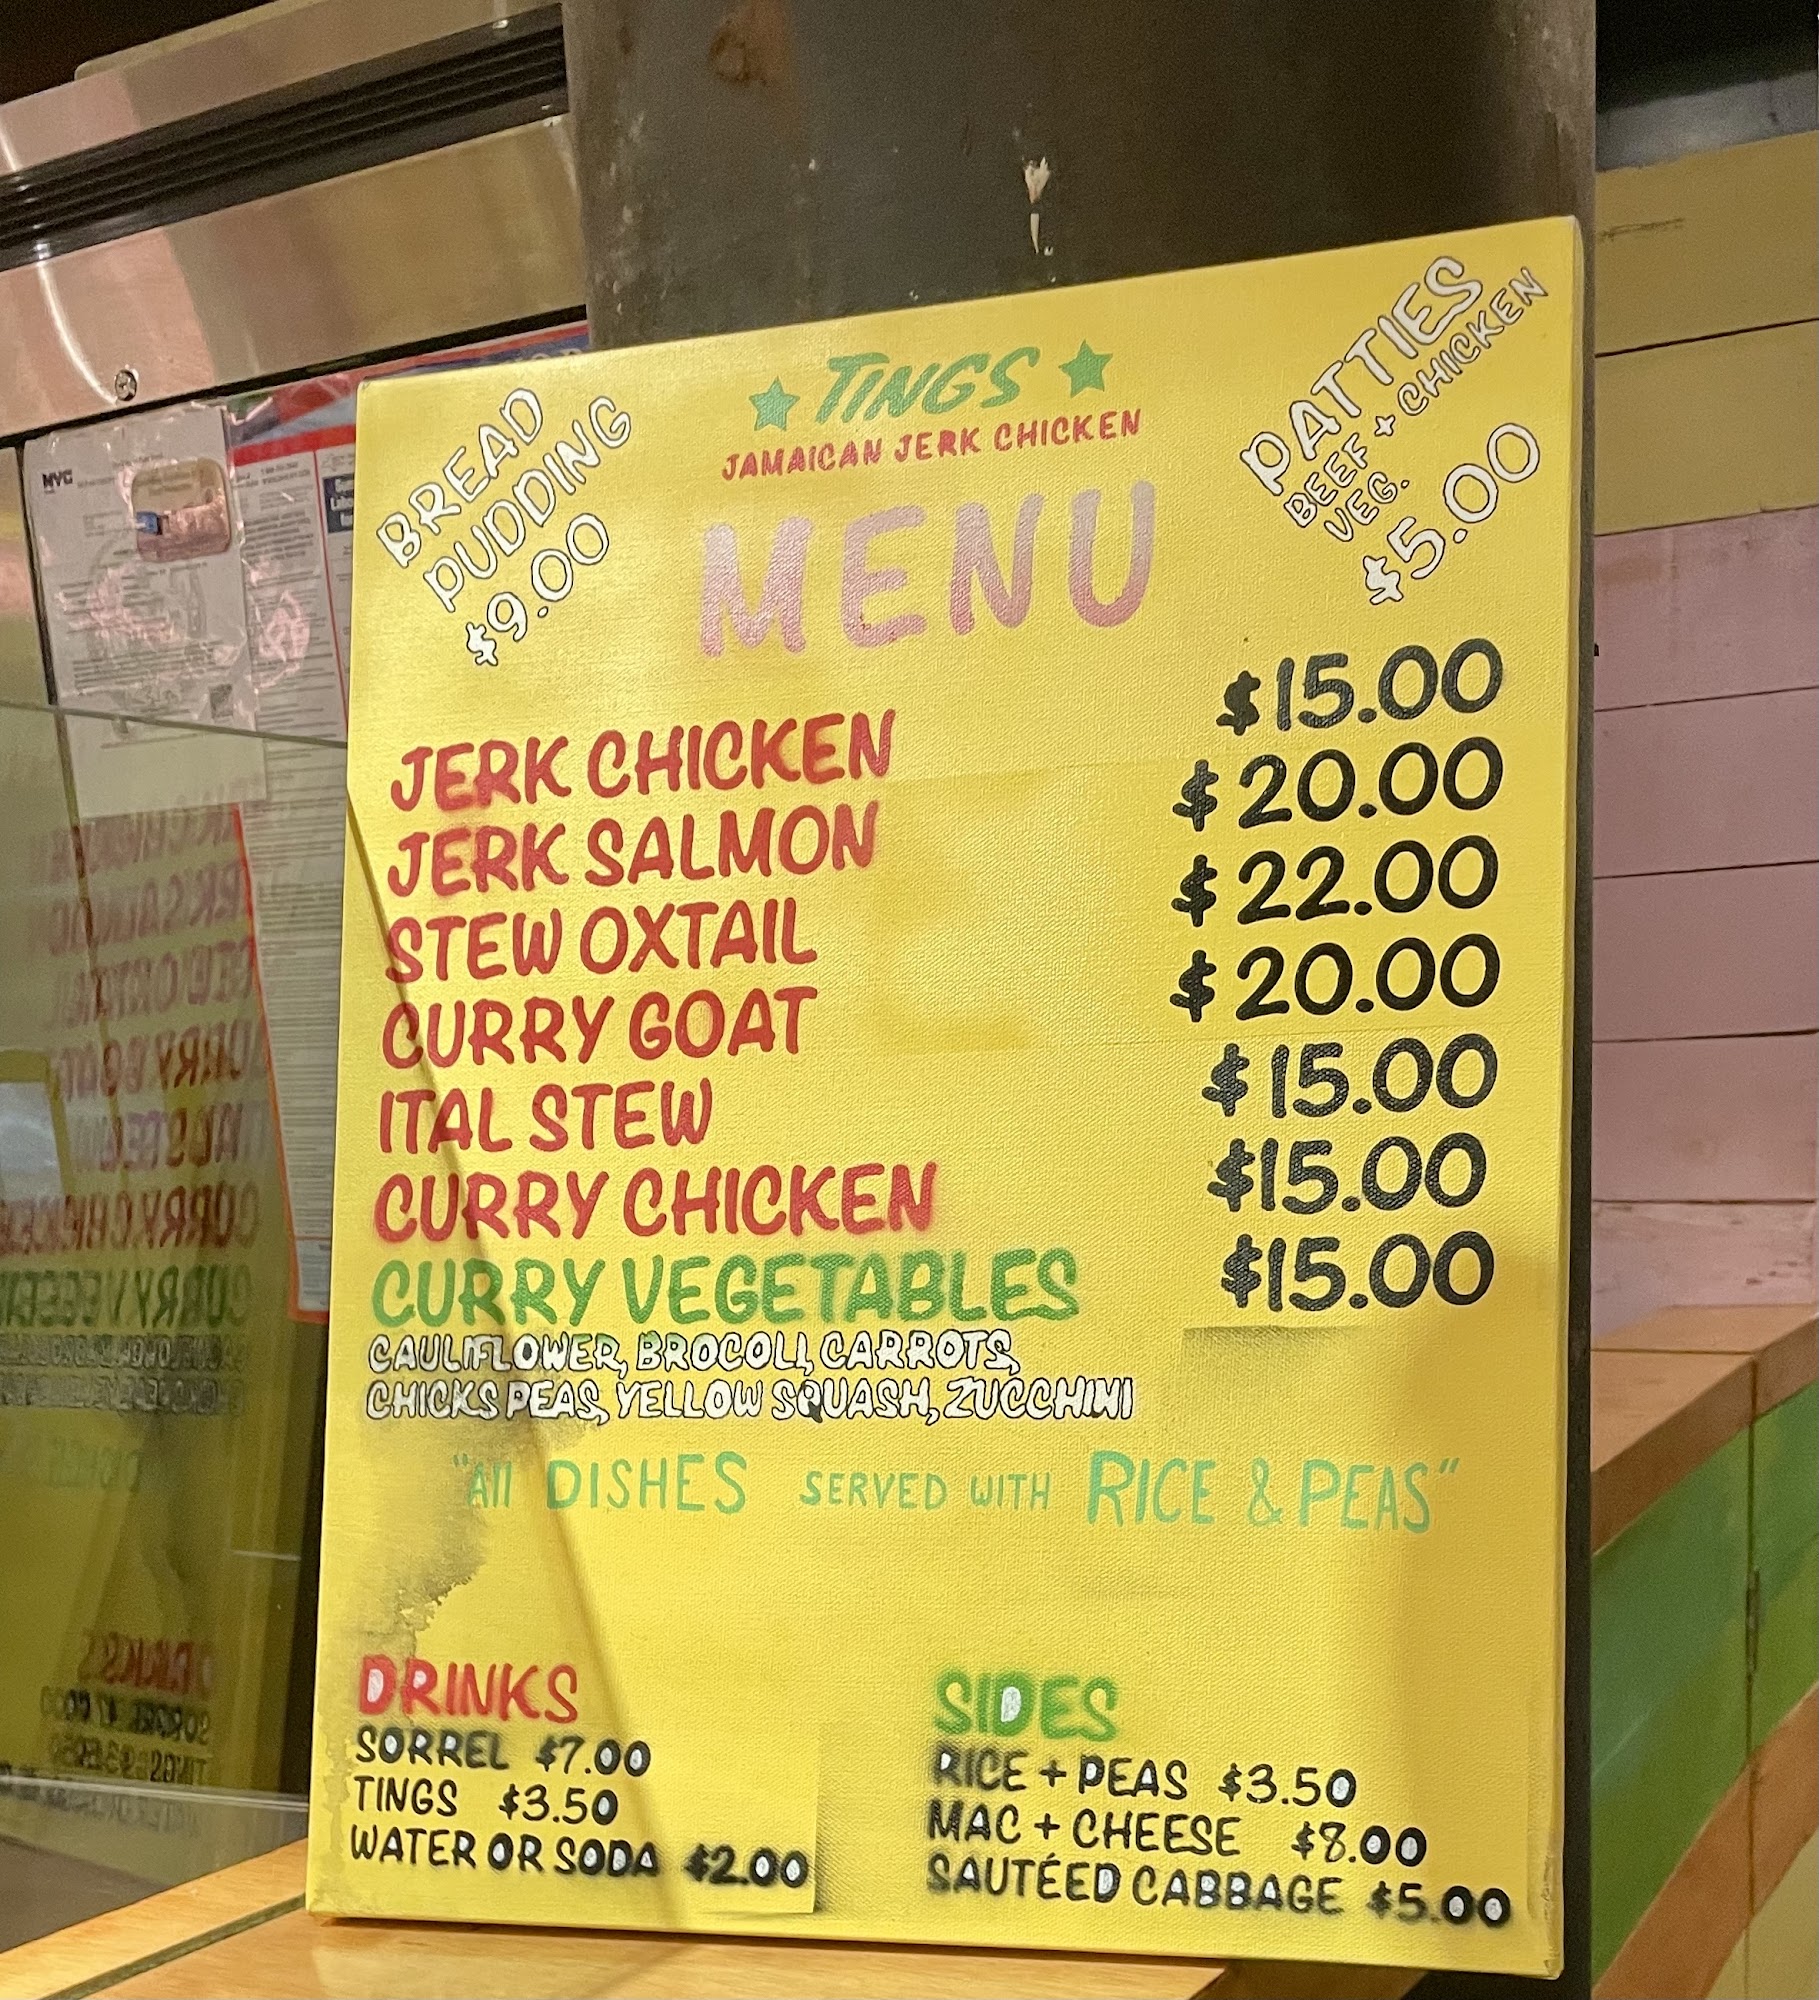 TINGS
JAMAICAN JERK CHICKEN
MENU
BREAD
PUDDING
$9.00
PATTIES
BEEF + CHICKEN
VEG.
$5.00
JERK CHICKEN $15.00
JERK SALMON $20.00
STEW OXTAIL $22.00
CURRY GOAT $20.00
ITAL STEW $15.00
CURRY CHICKEN $15.00
CURRY VEGETABLES $15.00
CAULIFLOWER, BROCOLI, CARROTS,
CHICKS PEAS, YELLOW SQUASH, ZUCCHINI
"All DISHES SERVED WITH RICE & PEAS"
DRINKS
SORREL $7.00
TINGS $3.50
WATER OR SODA $2.00
SIDES
RICE + PEAS $3.50
MAC + CHEESE $8.00
SAUTÉED CABBAGE $5.00
NYC